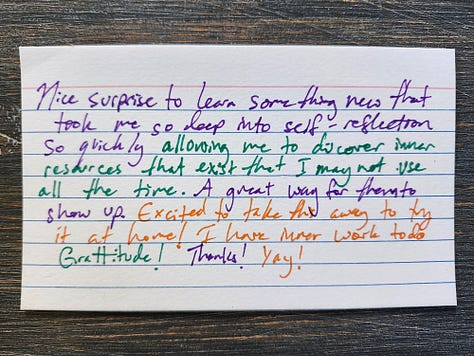 Nice surprise to learn something new that
took me so deep into self-reflection
so quickly allowing me to discover inner
resources that exist that I may not use
all the time. A great way for them to
show up. Excited to take this away to try
it at home! I have inner work to do
Grattitude! Thanks! Yay!